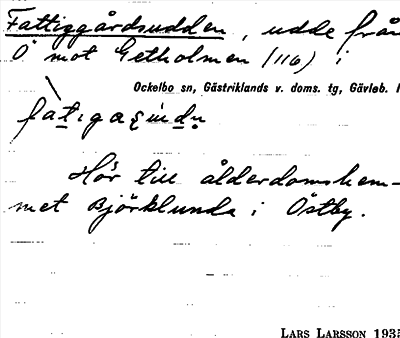 Fattiggårdsudden, udde från
Ö mot Getholmen (116) i
Ockelbo sn, Gästriklands v. doms. tg, Gävleb.
Hör till ålderdomshem-
met Björklunda i Östby.
LARS LARSSON 1935